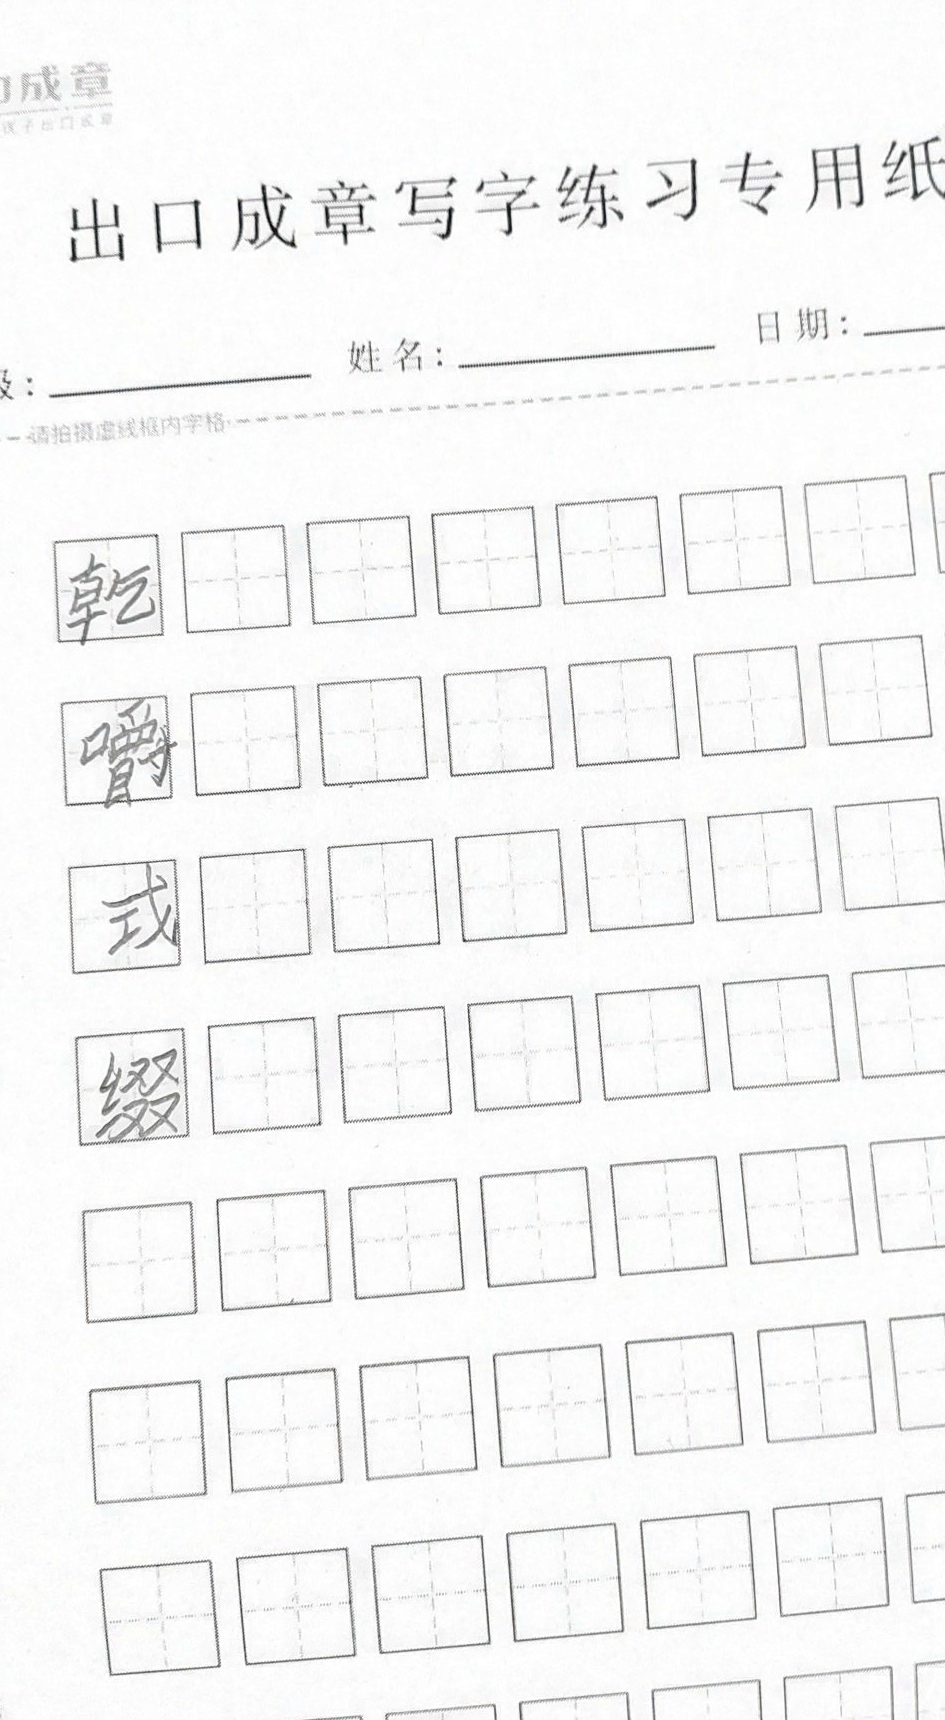 成章
孩子出口成章
出口成章写字练习专用纸
级: 姓名: 日期:
请拍摄虚线框内字格
乾
嚼
式
缀